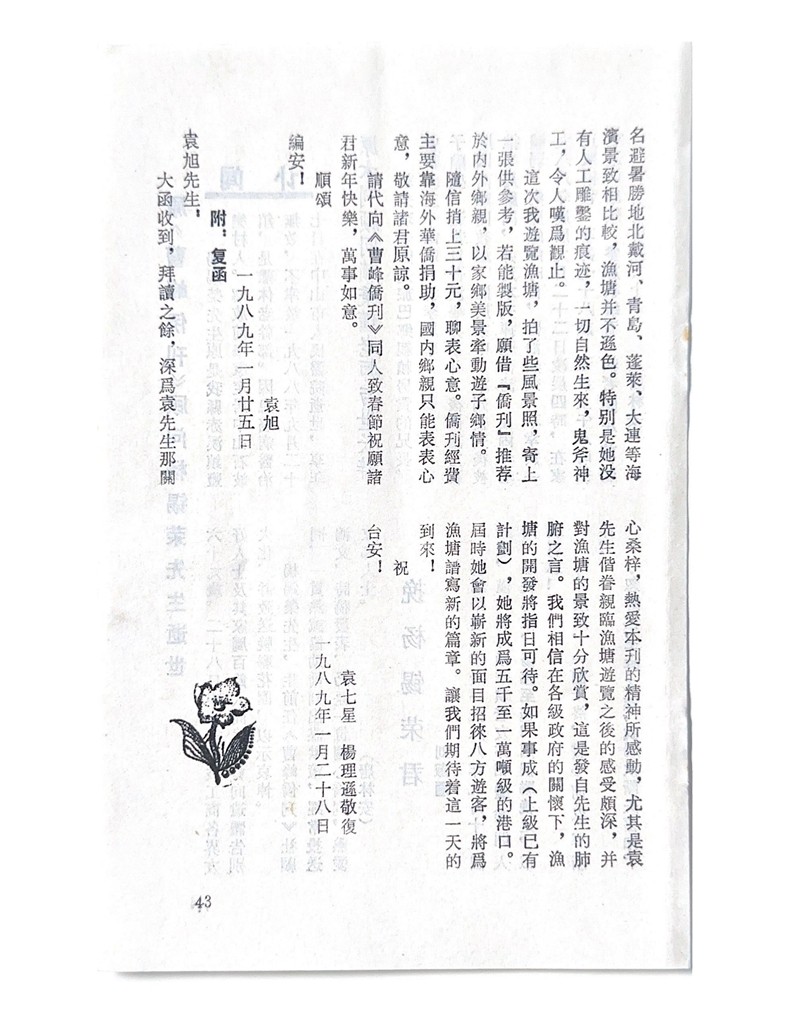 名避暑勝地北戴河、青島、蓬萊、大連等海
濱景致相比較，漁塘并不遜色。特别是她没
有人工雕鑿的痕迹，一切自然生來，鬼斧神
工，令人嘆爲觀止。
這次我遊覽漁塘，拍了些風景照，寄上
一張供參考，若能製版，願借『僑刊』推荐
於内外鄉親，以家鄉美景牽動遊子鄉情。
隨信捎上三十元，聊表心意。僑刊經費
主要靠海外華僑捐助，國内鄉親只能表表心
意，敬請諸君原諒。
請代向《曹峰僑刊》同人致春節祝願諸
君新年快樂，萬事如意。
順頌
編安！
袁旭
一九八九年一月廿五日
附：复函
袁旭先生：
大函收到，拜讀之餘，深爲袁先生那關
心桑梓，熱愛本刊的精神所感動，尤其是袁
先生偕眷親臨漁塘遊覽之後的感受頗深，并
對漁塘的景致十分欣賞，這是發自先生的肺
腑之言。我們相信在各級政府的關懷下，漁
塘的開發將指日可待。如果事成（上級已有
計劃），她將成爲五千至一萬噸級的港口。
屆時她會以嶄新的面目招徠八方遊客，將爲
漁塘譜寫新的篇章。讓我們期待着這一天的
到來！
祝
台安！
袁七星 楊理遜敬復
一九八九年一月二十八日
43